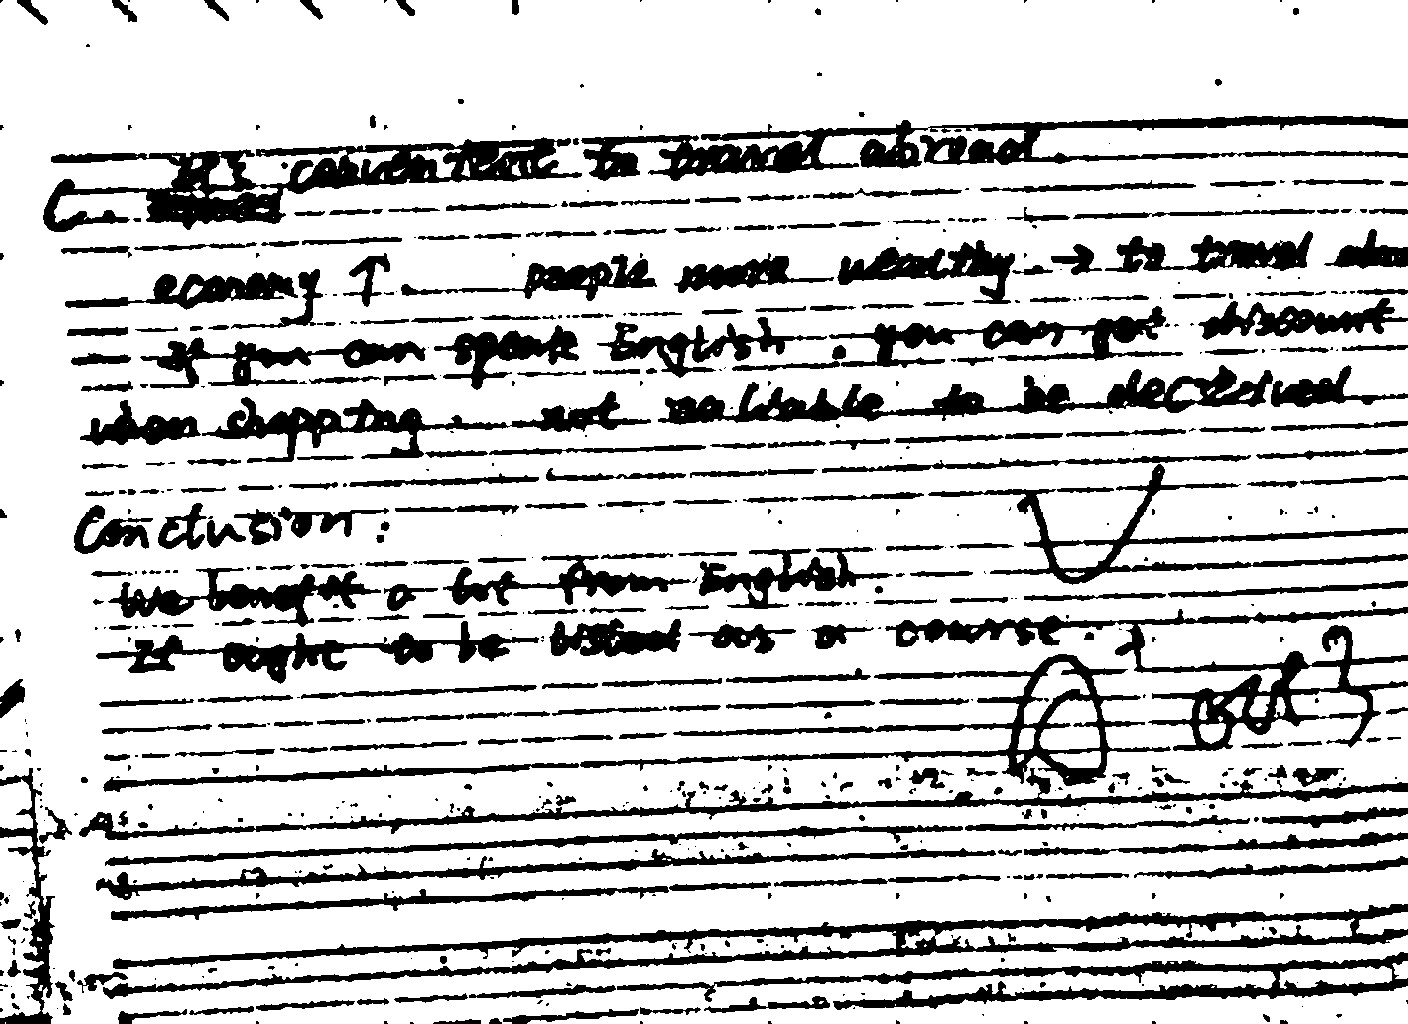 It's convenient to travel abroad.
C.
economy ↑. people more wealthy → to travel
If you can speak English. you can get discount
when shopping. not to be deceived.
Conclusion:
We benefit a lot from English.
It ought to be listed as a course.